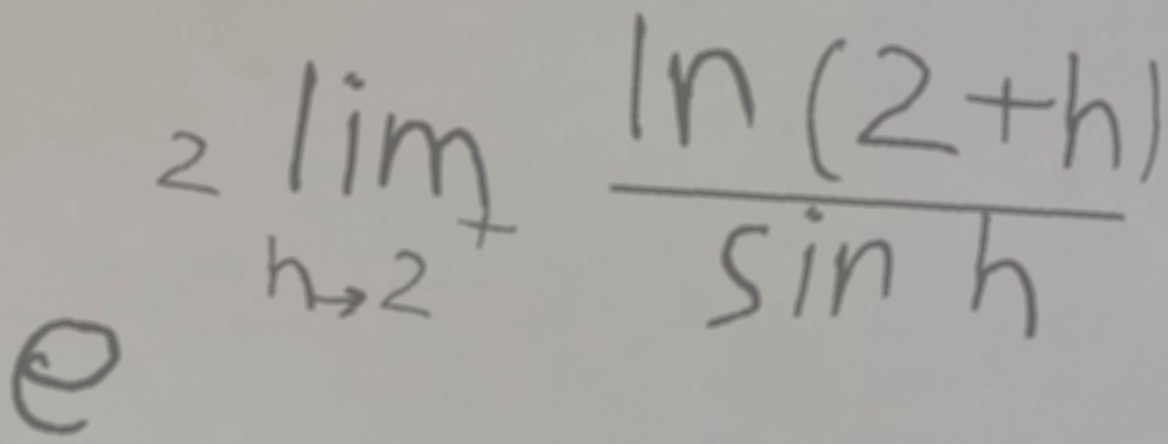 e^{2 \lim_{h \to 2^+} \frac{\ln(2+h)}{\sin h}}